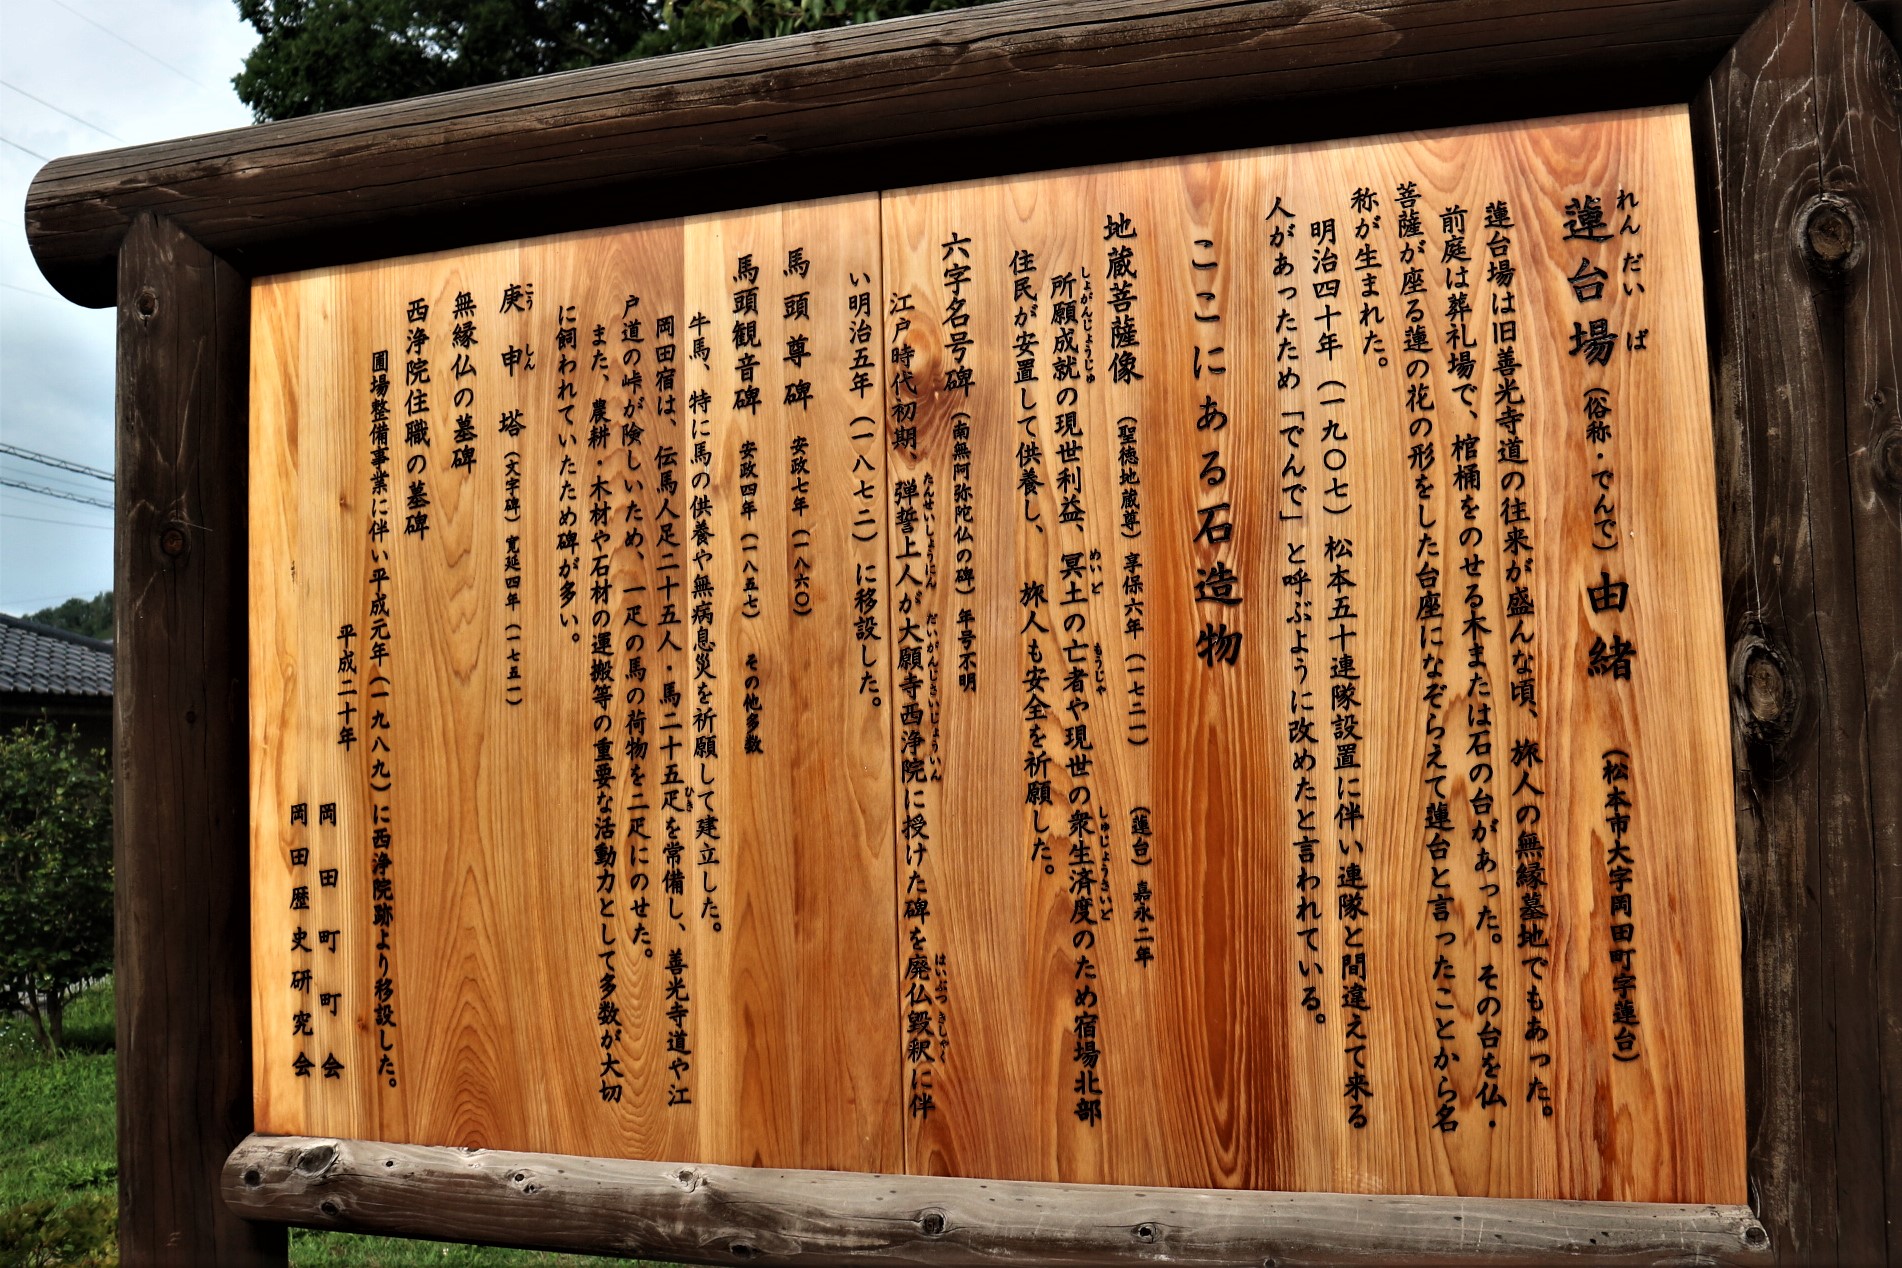 蓮台場(俗称・でんで)由緒　(松本市大字岡田町字蓮台)
れんだいば
蓮台場は旧善光寺道の往来が盛んな頃、旅人の無縁墓地でもあった。
前庭は葬礼場で、棺桶をのせる木または石の台があった。その台を仏・
菩薩が座る蓮の花の形をした台座になぞらえて蓮台と言ったことから名
称が生まれた。
明治四十年(一九〇七)松本五十連隊設置に伴い連隊と間違えて来る
人があったため「でんで」と呼ぶように改めたと言われている。
ここにある石造物
地蔵菩薩像(聖徳地蔵尊)享保六年(一七二一)　(蓮台)嘉永二年
所願成就の現世利益、冥土の亡者や現世の衆生済度のため宿場北部
しょがんじょうじゅ　めいど　もうじゃ　しゅじょうさいど
住民が安置して供養し、旅人も安全を祈願した。
六字名号碑(南無阿弥陀仏の碑)年号不明
江戸時代初期、弾誓上人が大願寺西浄院に授けた碑を廃仏毀釈に伴
たんせいしょうにん　だいがんじさいじょういん　はいぶつきしゃく
い明治五年(一八七二)に移設した。
馬頭尊碑　安政七年(一八六〇)
馬頭観音碑　安政四年(一八五七)　その他多数
牛馬、特に馬の供養や無病息災を祈願して建立した。
岡田宿は、伝馬人足二十五人・馬二十五疋を常備し、善光寺道や江
ひき
戸道の峠が険しいため、一疋の馬の荷物を二疋にのせた。
また、農耕・木材や石材の運搬等の重要な活動力として多数が大切
に飼われていたため碑が多い。
庚申塔(文字碑)寛延四年(一七五一)
こうしん
無縁仏の墓碑
西浄院住職の墓碑
圃場整備事業に伴い平成元年(一九八九)に西浄院跡より移設した。
平成二十年
岡田町町会
岡田歴史研究会